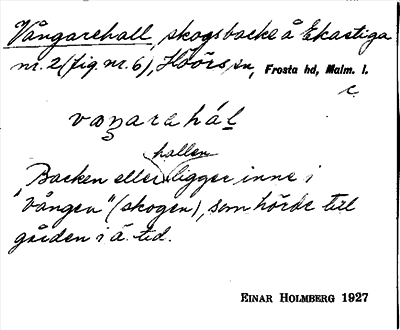 Vångarehall, skogsbacke å Ekastiga
nr. 2 (fig. nr. 6), Höörs sn, Frosta hd, Malm. l.
c.
vaŋarahál
hallen
„Backen eller ligger inne i
vången" (skogen), som hörde till
gården i ä. tid.
EINAR HOLMBERG 1927